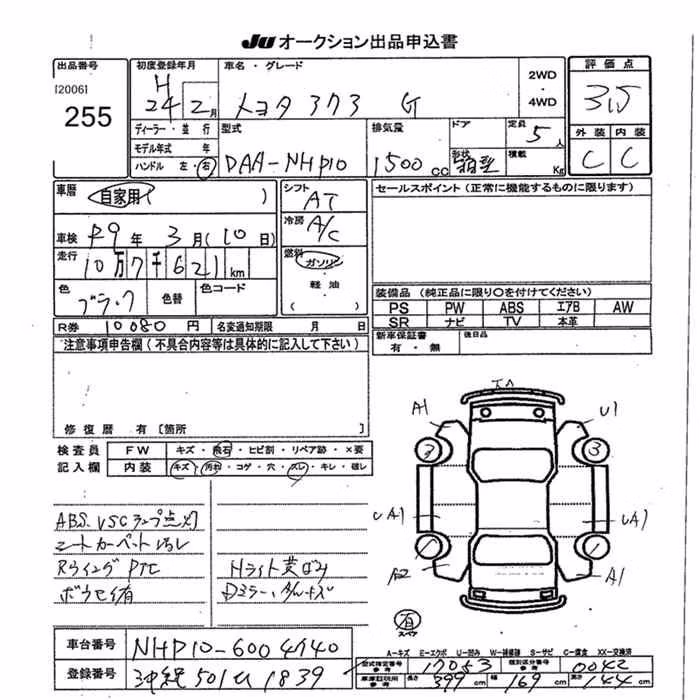 JU オークション出品申込書
出品番号
[2006]
255
初度登録年月
H
24 2月
車名・グレード
トヨタ アクア G
2WD
・
4WD
評価点
3.5
外装 内装
C C
ディーラー・並行
モデル年式 年
ハンドル 左・右
型式
DAA-NHP10
排気量
1500cc
ドア
形状
箱型
定員
5人
積載
Kg
車歴
自家用( )
車検 R9年 3月(10日)
走行
10万7千621km
色
ブラック
色替
色コード
シフト
AT
冷房
A/C
燃料
ガソリン
・
軽油
( )
セールスポイント(正常に機能するものに限ります)
装備品(純正品に限り〇を付けてください)
PS PW ABS エアB AW
SR ナビ TV 本革
新車保証書
有・無
後日品
R券 10080円 名変通知期限 月 日
注意事項申告欄(不具合内容等は具体的に記入して下さい)
修復歴 有[箇所 ]
検査員
記入欄
FW キズ・飛石・ヒビ割・リペア跡・×要
内装 キズ・汚れ・コゲ・穴・スレ・キレ・破レ
ABS. VSCランプ点灯
シートカーペット汚レ
Hライト黄ばみ
車台番号 NHP10-6004740
登録番号 沖縄501 1839
A1
U1
3
3
A1
A2
A1
有
スペア
A-キズ E-エクボ U-凹み W-補修跡 S-サビ C-腐食 XX-交換済
型式指定番号
参考
17053
類別区分番号
参考
0042
車庫証明用
参考
長さ 399cm 幅 169cm 高さ 144cm